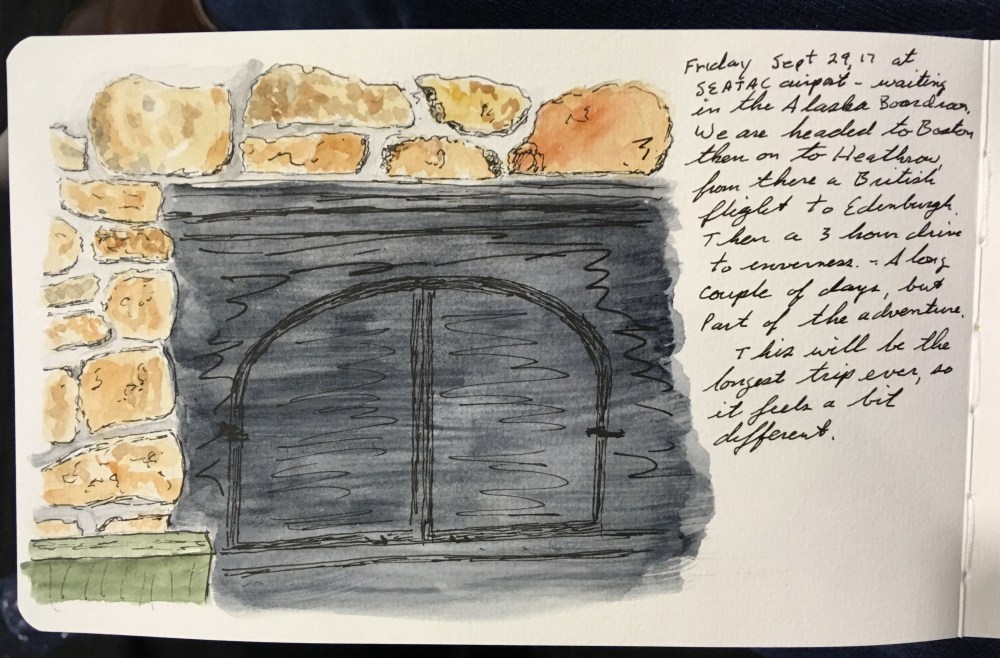 Friday Sept 29, 17 at
SEATAC airport - waiting
in the Alaska Boardroom.
We are headed to Boston
then on to Heathrow,
from there a British
flight to Edenburgh.
Then a 3 hour drive
to enverness. - A long
couple of days, but
Part of the adventure.
This will be the
longest trip ever, so
it feels a bit
different.